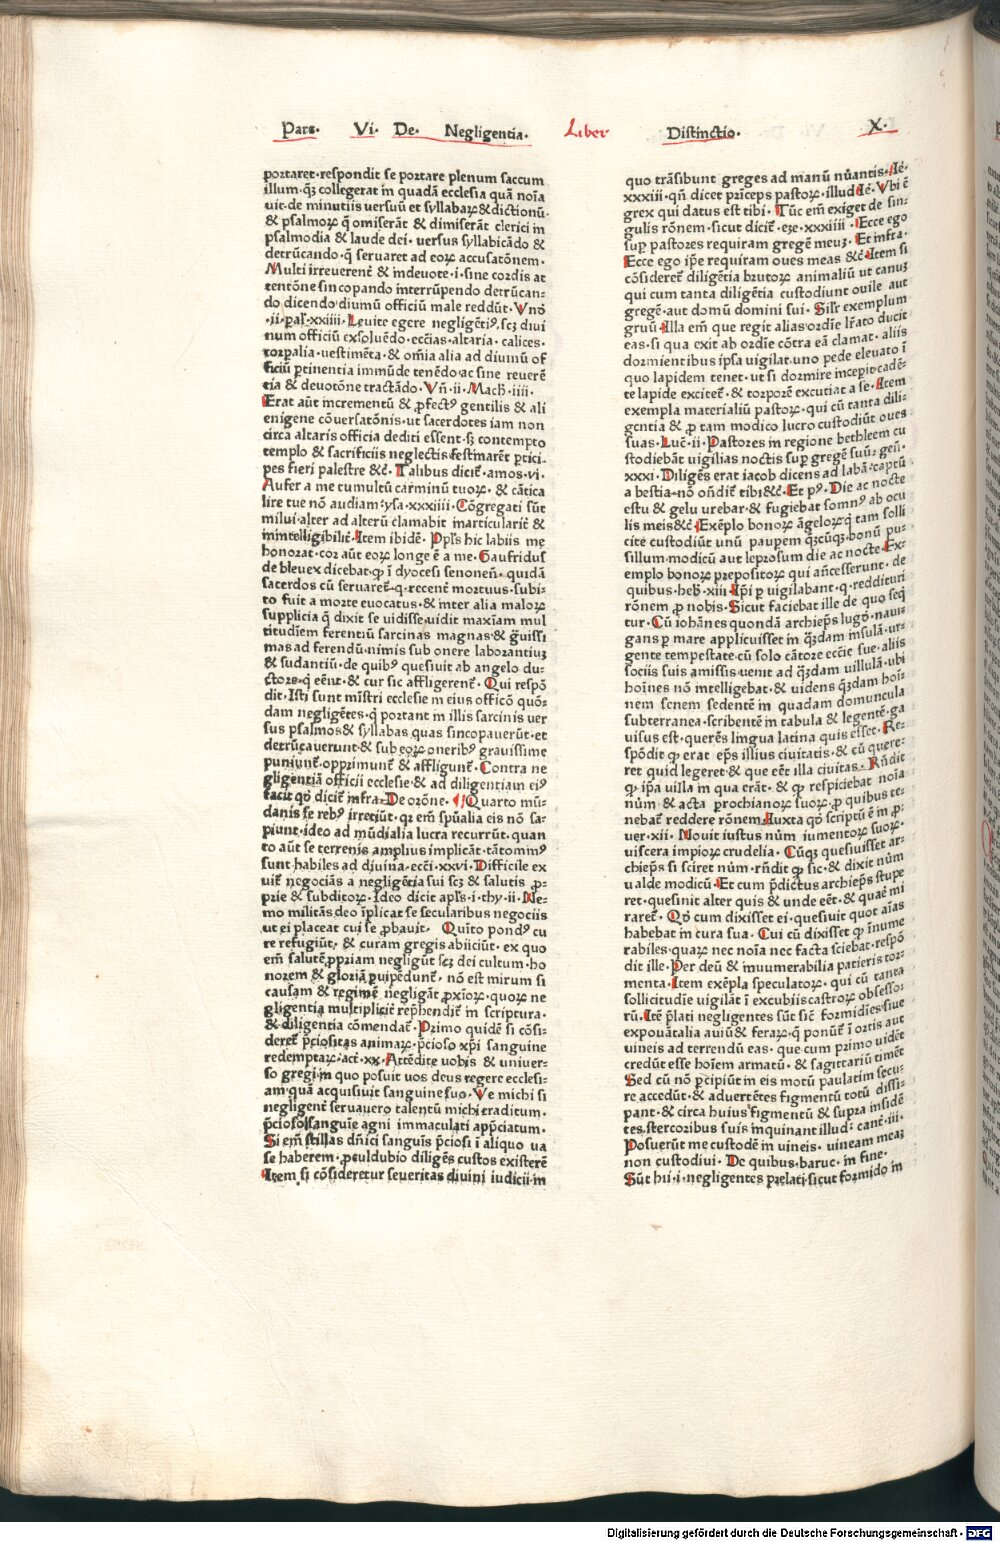 Pars· Vi· De· Negligentia· Liber Distinctio· X·
portaret·respondit se portare plenum saccum
illum·qȝ collegerat in quadā ecclesia quā noīa
uit·de minutiis versuū et syllabaꝝ & dictionū·
& psalmoꝝ q̄ omiserāt & dimiserāt clerici in
psalmodia & laude dei· versus syllabicādo &
detrūcando· q̄ seruaret ad eoꝝ accusatōnem·
Multi irreuerenť & indeuote·i·sine cordis at
tentōne sincopando interrūpendo detrūcan-
do dicendo diuinū officiū male reddūt· Vnō
·ii·pal·xxiiii·Leuite egere negligētiꝰ·scȝ diui
num officiū exsoluēdo·eccīas·altaria· calices·
corpalia·uestimēta·& om̄ia alia ad diuinū of
ficiū ꝑtinentia immūde tenēdo·ac sine reuerē
tia & deuotōne tractādo· Vn̄·ii·Mach·iiii·
Erat aūt incrementū & ꝓfectꝰ gentilis & ali
enigene cōuersatōnis·ut sacerdotes iam non
circa altaris officia dediti essent·sȝ contempto
templo & sacrificiis neglectis festinarēt ꝑtici-
pes fieri palestre &c̄· Talibus diciť·amos·vi·
Aufer a me tumultū carminū tuoꝝ· & cātica
lire tue nō audiam·ysa·xxxiiii· Cōgregati sūt
milui·alter ad alterū clamabit ƚarticulariť &
inintelligibiliť·Item ibidē· Pplꝰs hic labiis me
honorat·cor aūt eoꝝ longe ē a me· Gaufridus
de bleuex dicebat·ꝙ ī dyocesi senoneñ· quidā
sacerdos cū seruareť·q̄ recenť mortuus·subi-
to fuit a morte euocatus·& inter alia maloꝝ
supplicia q̄ dixit se uidisse·uidit maxīam mul
titudīem ferentiū sarcinas magnas·& ḡuissi
mas ad ferendū·nimis sub onere laborantiuȝ
& sudantiū·de quibꝰ quesiuit ab angelo du-
ctore·q̄ eēnt·& cur sic affligerenť· Qui respō
dit·Isti sunt mīstri ecclesie in eius officō quōs-
dam negligētes·q̄ portant in illis sarcinis ver
sus psalmos & syllabas quas sincopauerūt·et
detrūcauerunt·& sub eoꝝ oneribꝰ grauissime
puniunť·opprimunť & affligunť·Contra ne
gligentiā officii ecclesie·& ad diligentiam eiꝰ
facit qō diciť infra·De orōne· ¶ Quarto mū-
danis se rebꝰ irretiūt·qꝛ em̄ spūalia eis nō sa-
piunt·ideo ad mūdialia lucra recurrūt· quan
to aūt se terrenis amplius implicāt·tātominꝰ
sunt habiles ad diuina·eccī·xxvi·Difficile ex
uiť negociās a negligētia sui scȝ & salutis ꝓ-
prie & subditoꝝ· Ideo dicit apls·i·thy·ii· Ne-
mo militās deo īplicat se secularibus negociis
ut ei placeat cui se ꝓbauit· Quīto pondꝰ cu
re refugiūt· & curam gregis abiiciūt· ex quo
em̄ salutē ꝓpriam negligūt scȝ dei cultum·ho
norem & gloriā ꝑuipēdunť· nō est mirum si
causam & regimē negligāt ꝓxīoꝝ· quoꝝ ne
gligentia multipliciť rep̄hendiť in scriptura·
& diligentia cōmendať· Primo quidē si cōsi-
dereť p̄ciositas animaꝝ·p̄cioso xp̄i sanguine
redemptaꝝ·act·xx·Attēdite uobis & uniuer-
so gregi in quo posuit uos deus regere ecclesi-
am quā acquisiuit sanguine suo· Ve michi si
negligenť seruauero talentū michi traditum·
p̄cioso sanguīe agni immaculati app̄ciatum·
Si em̄ stillas dn̄ici sanguīs p̄ciosi ī aliquo ua
se haberem·ꝓculdubio diligēs custos existerē
Item si cōsideretur seueritas diuini iudicii·in
quo trāsibunt greges ad manū nūantis·Ié·
xxxiii·qn̄ dicet p̄iceps pastoꝝ·illud Ié· Vbi ē
grex qui datus est tibi· Tūc em̄ exiget de sin-
gulis rōnem·sicut diciť·eze·xxxiiii· Ecce ego
suꝑ pastores requiram gregē meuȝ· Et infra·
Ecce ego ip̄e requiram oues meas &c̄·Item si
cōsidereť diligētia brutoꝝ animaliū ut canuȝ
qui cum tanta diligētia custodiunt ouile aut
gregē·aut domū domini sui· Silr̄ exemplum
gruū·Illa em̄ que regit alias ordīe lr̄ato ducit
eas·si qua exit ab ordīe cōtra eā clamat· aliis
dormientibus ipsa uigilat·uno pede eleuato ī
quo lapidem tenet·ut si dormire inceperit cadē-
te lapide exciteť·& torporē excutiat a se·Item
exempla materialiū pastoꝝ·qui cū tanta dili-
gentia & ꝓ tam modico lucro custodiūt oues
suas·Luč·ii·Pastores in regione bethleem cu
stodiebāt uigilias noctis suꝑ gregē suū·geñ·
xxxi·Diligēs erat iacob dicens ad labā·captū
a bestia·nō on̄diť tibi &c̄· Et pꝰ· Die ac nocte
estu & gelu urebar·& fugiebat somnꝰ ab ocu
lis meis &c̄·Exēplo bonoꝝ āgeloꝝ q̄ tam solli
cite custodiūt unū paupem qȝcūqȝ·bonū pu-
sillum·modicū aut leprosum die ac nocte·Ex-
emplo bonoꝝ prepositoꝝ qui an̄cesserunt· de
quibus·heb·xiii·Ip̄i ꝑ uigilabant·q̄ reddituri
rōnem ꝓ nobis· Sicut faciebat ille de quo seq̄
tur· Cū iohānes quondā archiep̄s lugd·naui-
gans ꝑ mare applicuisset in qȝdam insulā·ur-
gente tempestate·cū solo cātore eccīe sue·aliis
sociis suis amissis·uenit ad qȝdam uillulā·ubi
hoīnes nō intelligebat·& uidens qȝdam hoī-
nem senem sedentē in quadam domuncula
subterranea·scribentē in tabula & legentē·ga
uisus est·querēs lingua latina quis esset· Re-
spōdit ꝙ erat ep̄s illius ciuitatis·& cū quere-
ret quid legeret·& que eēt illa ciuitas· Rn̄dit
ꝙ ip̄a uilla in qua erāt·& ꝙ respiciebat noīa
nūm & acta ꝓchianoꝝ suoꝝ·ꝓ quibus te-
nebať reddere rōnem·Iuxta qō scriptū ē in ꝓ
uer·xii· Nouit iustus nūm iumentoꝝ suoꝝ·
uiscera impioꝝ crudelia· Cūqȝ quesiuisset ar-
chiep̄s si sciret nūm·rn̄dit ꝙ sic·& dixit nūm
ualde modicū·Et cum p̄dictus archiep̄s stupe
ret·quesiuit alter quis & unde eēt·& quaē mi
raret· Qō cum dixisset ei·quesiuit quot aīas
habebat in cura sua· Cui cū dixisset ꝙ inume
rabiles·quaꝝ nec noīa nec facta sciebat·respō
dit ille·Per deū & innumerabilia patieris tor-
menta·Item exēpla speculatoꝝ· qui cū tanta
sollicitudīe uigilāt ī excubiis castroꝝ obsesso-
rū·Itē p̄lati negligentes sūt sicť formidies siue
expouātalia auiū & feraꝝ·q̄ ponūť ī ortis aut
uineis ad terrendū eas· que cum primo uidēt
credūt esse hoīem armatū· & sagittariū timēt
Sed cū nō ꝑcipiūt in eis motū paulatim secu-
re accedūt·& aduertētes figmentū totū dissi-
pant·& circa huius figmentū & supra insidē
tes·stercoribus suis inquinant illud· cant·iii·
Posuerūt me custodē in uineis· uineam meaȝ
non custodiui· De quibus·baruc· in fine·
Sūt hii·i·negligentes prelati·sicut formido in
Digitalisierung gefördert durch die Deutsche Forschungsgemeinschaft - DFG